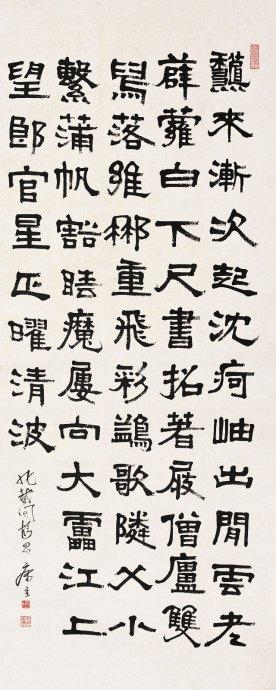 來漸次起沈疴岫出閒雲老
薜蘿白下尺書招著屐僧廬雙
舃落維那重飛彩鷁歌隣父小
繫蒲帆豁睡魔屢向大靁江上
望郎官星正曜清波